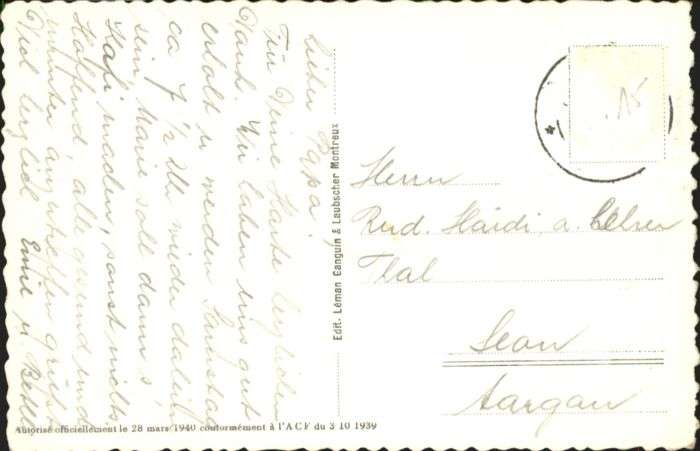 Lieber Papa!
Für Deine Karte herzlichen
Dank. Wir haben uns gut
erholt u. werden Samstag
ca 7 1/2 Uhr wieder daheim
sein. Marie soll dann
Kafi machen, sonst nichts.
Hoffend, alle gesund und
munter anzutreffen grüsst
Viel herzlich Emie u. Bethli
Edit. Léman Eanguin & Laubscher Montreux
Herrn
Rud. Häidi, a. Lehrer
Thal
Seon
Aargau
Autorisé officiellement le 28 mars 1940 conformément à l'ACF du 3 10 1939